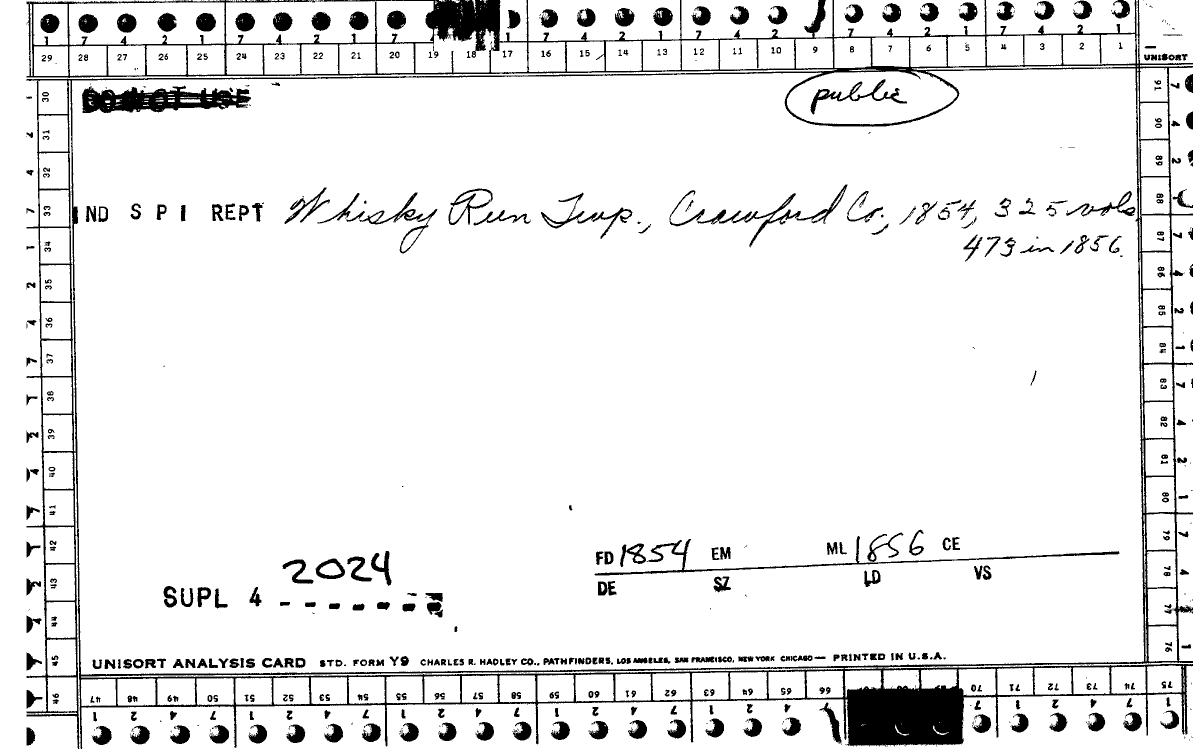 1 7 4 2 1 7 4 2 1 7 4 1 7 4 2 1 7 4 2 7 4 2 1 7 4 2 1
29 28 27 26 25 24 23 22 21 20 19 18 17 16 15 14 13 12 11 10 9 8 7 6 5 4 3 2 1
UNISORT
DO NOT USE
public
IND S P I REPT Whisky Run Twp., Crawford Co., 1854, 325 vols
473 in 1856.
2024
SUPL 4 - - - - - -
FD 1854 EM ML 1856 CE
DE SZ LD VS
UNISORT ANALYSIS CARD STD. FORM Y9 CHARLES R. HADLEY CO., PATHFINDERS, LOS ANGELES, SAN FRANCISCO, NEW YORK CHICAGO — PRINTED IN U.S.A.
30 31 32 33 34 35 36 37 38 39 40 41 42 43 44 45 46
91 90 89 88 87 86 85 84 83 82 81 80 79 78 77 76
47 48 49 50 51 52 53 54 55 56 57 58 59 60 61 62 63 64 65 66 70 71 72 73 74 75
1 2 4 7 1 2 4 7 1 2 4 7 1 2 4 7 1 2 4 7 1 2 4 7 1